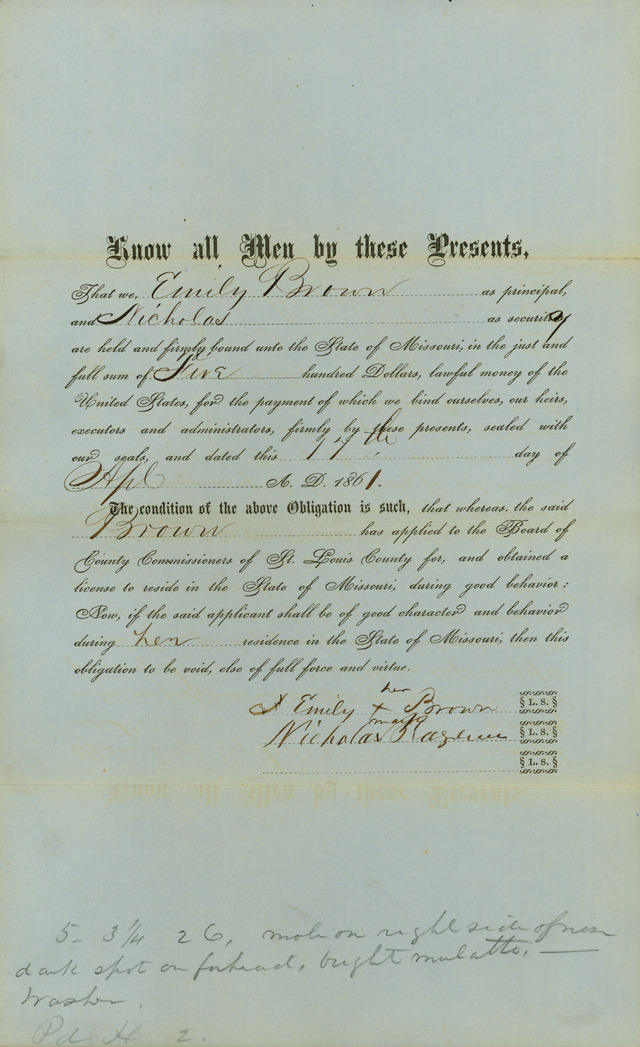 Know all Men by these Presents,
That we, Emily Brown as principal,
and Nicholas as security
are held and firmly bound unto the State of Missouri, in the just and
full sum of Five hundred Dollars, lawful money of the
United States, for the payment of which we bind ourselves, our heirs,
executors and administrators, firmly by these presents, sealed with
our seals, and dated this 17th day of
Apl A. D. 1861.
The condition of the above Obligation is such, that whereas the said
Brown has applied to the Board of
County Commissioners of St. Louis County for, and obtained a
license to reside in the State of Missouri, during good behavior:
Now, if the said applicant shall be of good character and behavior
during her residence in the State of Missouri, then this
obligation to be void, else of full force and virtue.
her
Emily + Brown § L. S. §
mark
Nicholas § L. S. §
§ L. S. §
5- 3 1/4 26, mole on right side of nose
dark spot on forhead, bright mulatto. —
Washer.
Pd 2.